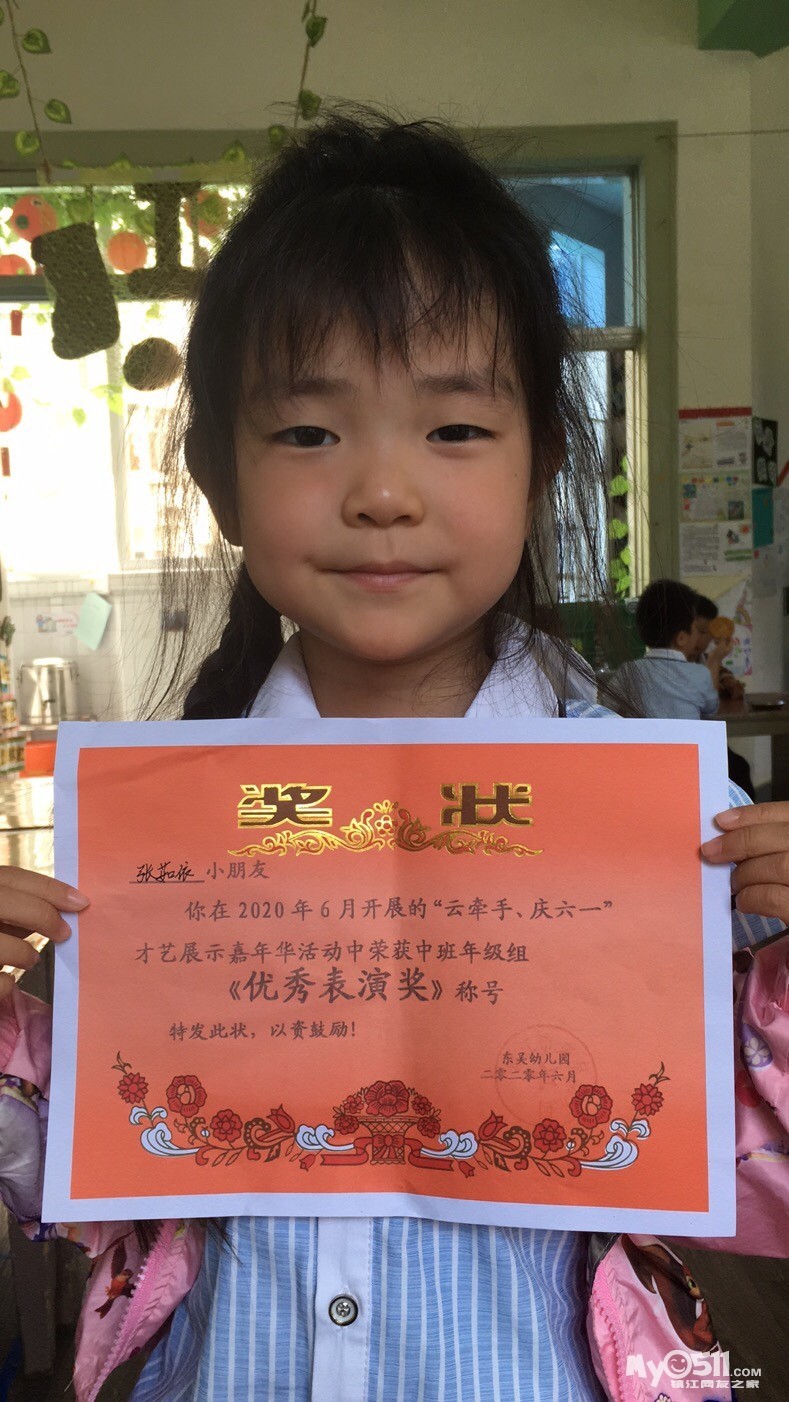 奖 状
张茹依 小朋友
你在 2020 年 6 月开展的“云牵手、庆六一”
才艺展示嘉年华活动中荣获中班年级组
《优秀表演奖》称号
特发此状，以资鼓励！
东吴幼儿园
二零二零年六月
My0511.COM
镇江网友之家